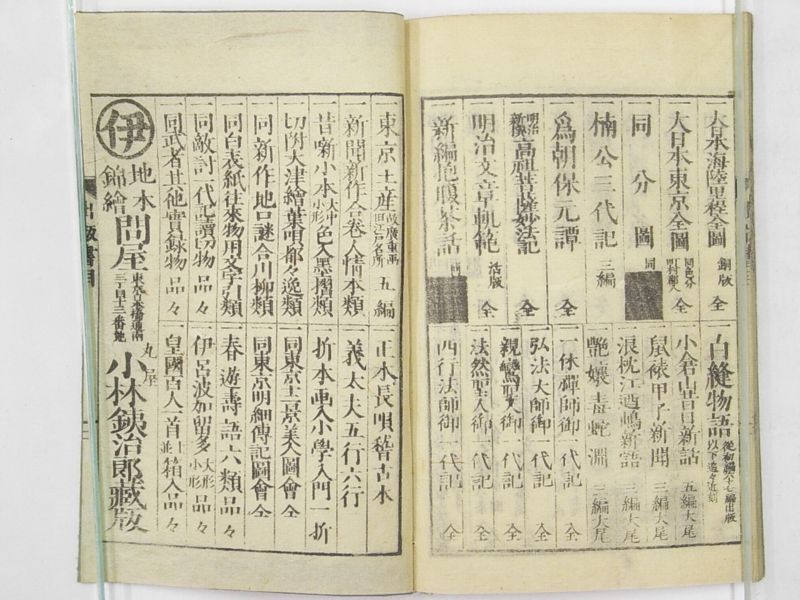 大日本海陸里程全圖 銅版 全
大日本東京全圖 同色分 町村郡入 全
同分圖 同
楠公三代記 三編
爲朝保元譚 全
明治新撰 高祖日蓮妙法記 全
明治文章軌範 活版 全
新編絶腹茶話 同
白縫物語 從初編六十七編出版 以下追々近刻
小倉山昔日新話 五編大尾
鼠裱甲子新聞 三編大尾
浪枕江の嶋新語 三編大尾
艷孃毒蛇淵 三編大尾
一休禪師御一代記 全
弘法大師御一代記 全
親鸞聖人御一代記 全
法然聖人御一代記 全
西行法師御一代記 全
東京土産 故廣重画 旧江戸名所 五編
一新聞新作合卷人情本類
一昔噺小本 大中小形 色入墨摺類
一切附大津繪葉唄都々逸類
一同新作地口謎合川柳類
一同白表紙往來物用文字引類
一同敵討一代記讀切物 品々
一同武者其他實録物 品々
一正本長唄稽古本
一義太夫五行六行
一折本画入小學入門 一折
一同東京十二景美人圖會 全
一同東京明細傳記圖會 全
一春遊壽語六類 品々
一伊呂波加留多 大形小形 品々
一皇國百人一首 並上箱入品々
伊
地本
錦繪
問屋
東京日本橋通南
三丁目十三番地
丸屋
小林鉄治郎藏版
出版書目